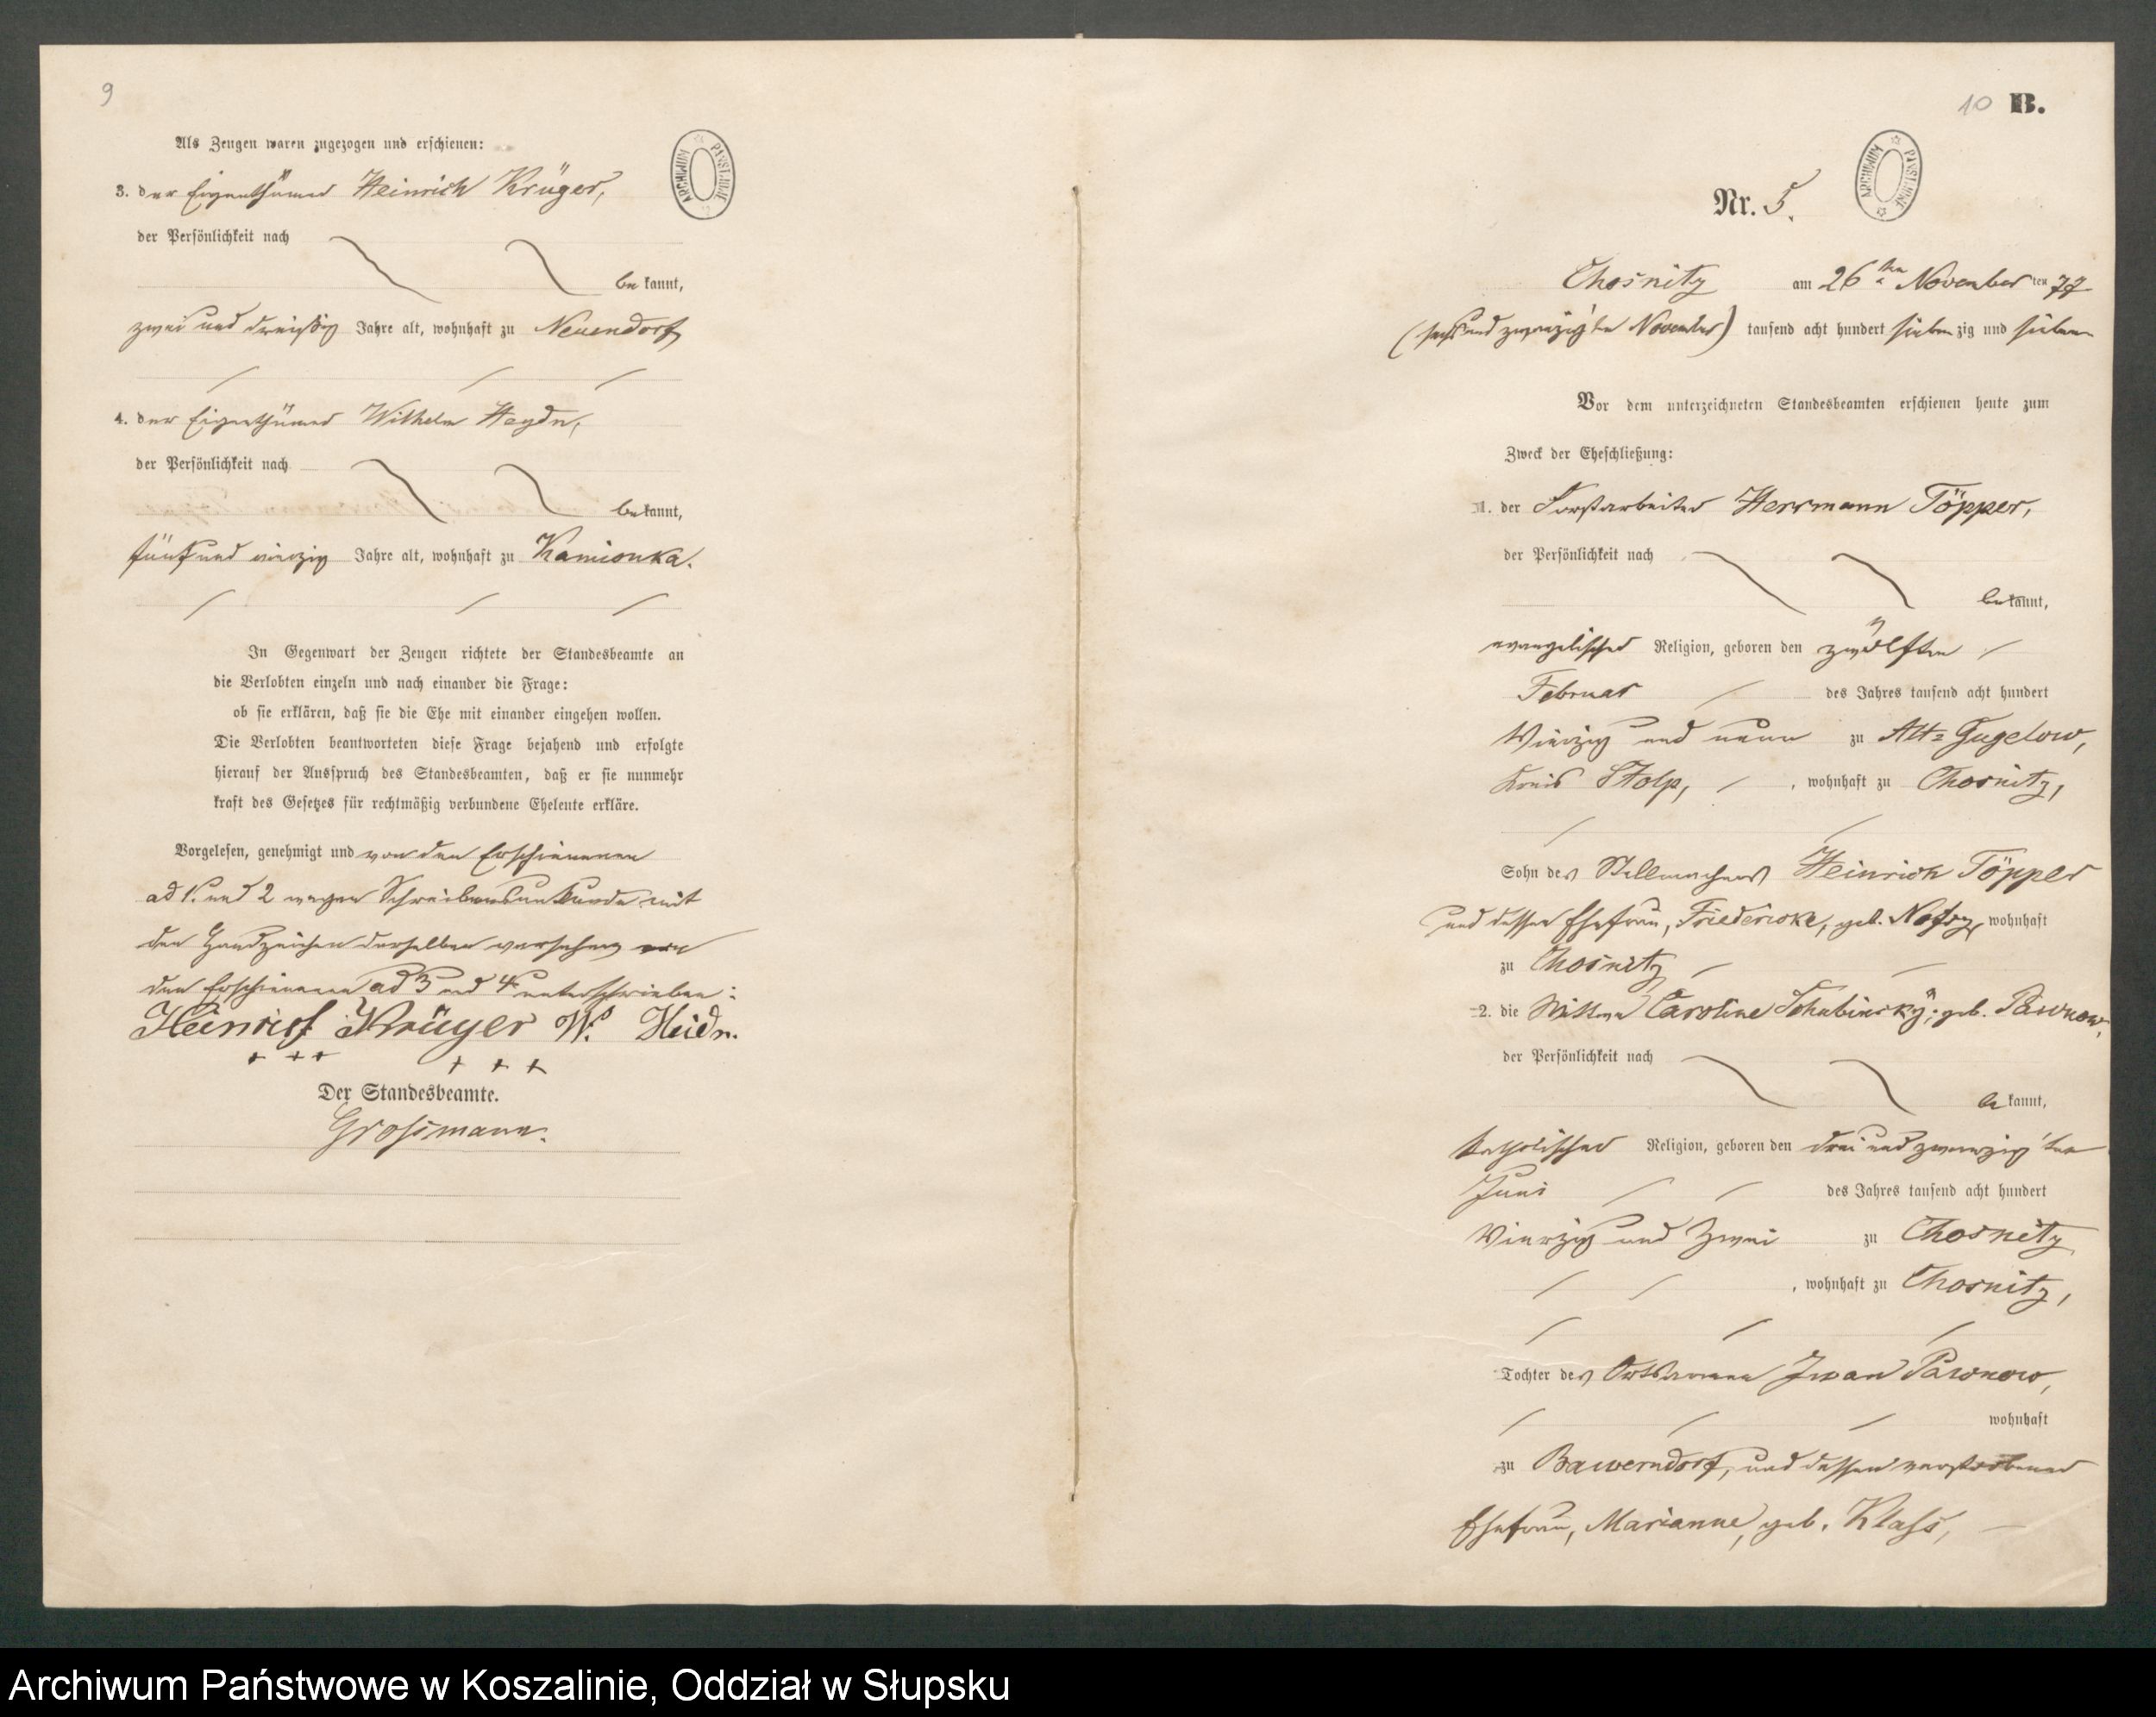 9
Als Zeugen waren zugezogen und erschienen:
3. der Eigenthümer Heinrich Krüger,
der Persönlichkeit nach
bekannt,
zwei und dreißig Jahre alt, wohnhaft zu Neuendorf
4. der Eigenthümer Wilhelm Heydn,
der Persönlichkeit nach
bekannt,
fünf und vierzig Jahre alt, wohnhaft zu Kamionka.
In Gegenwart der Zeugen richtete der Standesbeamte an
die Verlobten einzeln und nach einander die Frage:
ob sie erklären, daß sie die Ehe mit einander eingehen wollen.
Die Verlobten beantworteten diese Frage bejahend und erfolgte
hierauf der Ausspruch des Standesbeamten, daß er sie nunmehr
kraft des Gesetzes für rechtmäßig verbundene Eheleute erkläre.
Vorgelesen, genehmigt und von den Erschienenen
ad 1. und 2 wegen Schreibensunkunde mit
den Handzeichen derselben versehen von
den Erschienenen ad 3 und 4 unterschrieben:
Heinrich Krüger W. Heidn.
+ + + + + +
Der Standesbeamte.
Grossmann.
ARCHIWUM PAŃSTWOWE
10 B.
ARCHIWUM PAŃSTWOWE
Nr. 5.
Chosnitz am 26ten November ten 77
(sechs und zwanzigsten November) tausend acht hundert siebenzig und sieben
Vor dem unterzeichneten Standesbeamten erschienen heute zum
Zweck der Eheschließung:
1. der Forstarbeiter Herrmann Töpper,
der Persönlichkeit nach
bekannt,
evangelischer Religion, geboren den zwölften
Februar des Jahres tausend acht hundert
Vierzig und neun zu Alt= Gugelow,
Kreis Stolp, , wohnhaft zu Chosnitz,
Sohn des Stellmachers Heinrich Töpper
und dessen Ehefrau, Friedericke, geb. wohnhaft
zu Chosnitz
2. die Wittwe Caroline Schubinsky, geb. Pawnow,
der Persönlichkeit nach
bekannt,
katholischer Religion, geboren den drei und zwanzigsten
Juni des Jahres tausend acht hundert
Vierzig und Zwei zu Chosnitz
, wohnhaft zu Chosnitz,
Tochter des Ortsarmen Iwan Pawnow,
wohnhaft
zu Bawerndorf, und dessen verstorbener
Ehefrau, Marianne, geb. Klass,
Archiwum Państwowe w Koszalinie, Oddział w Słupsku